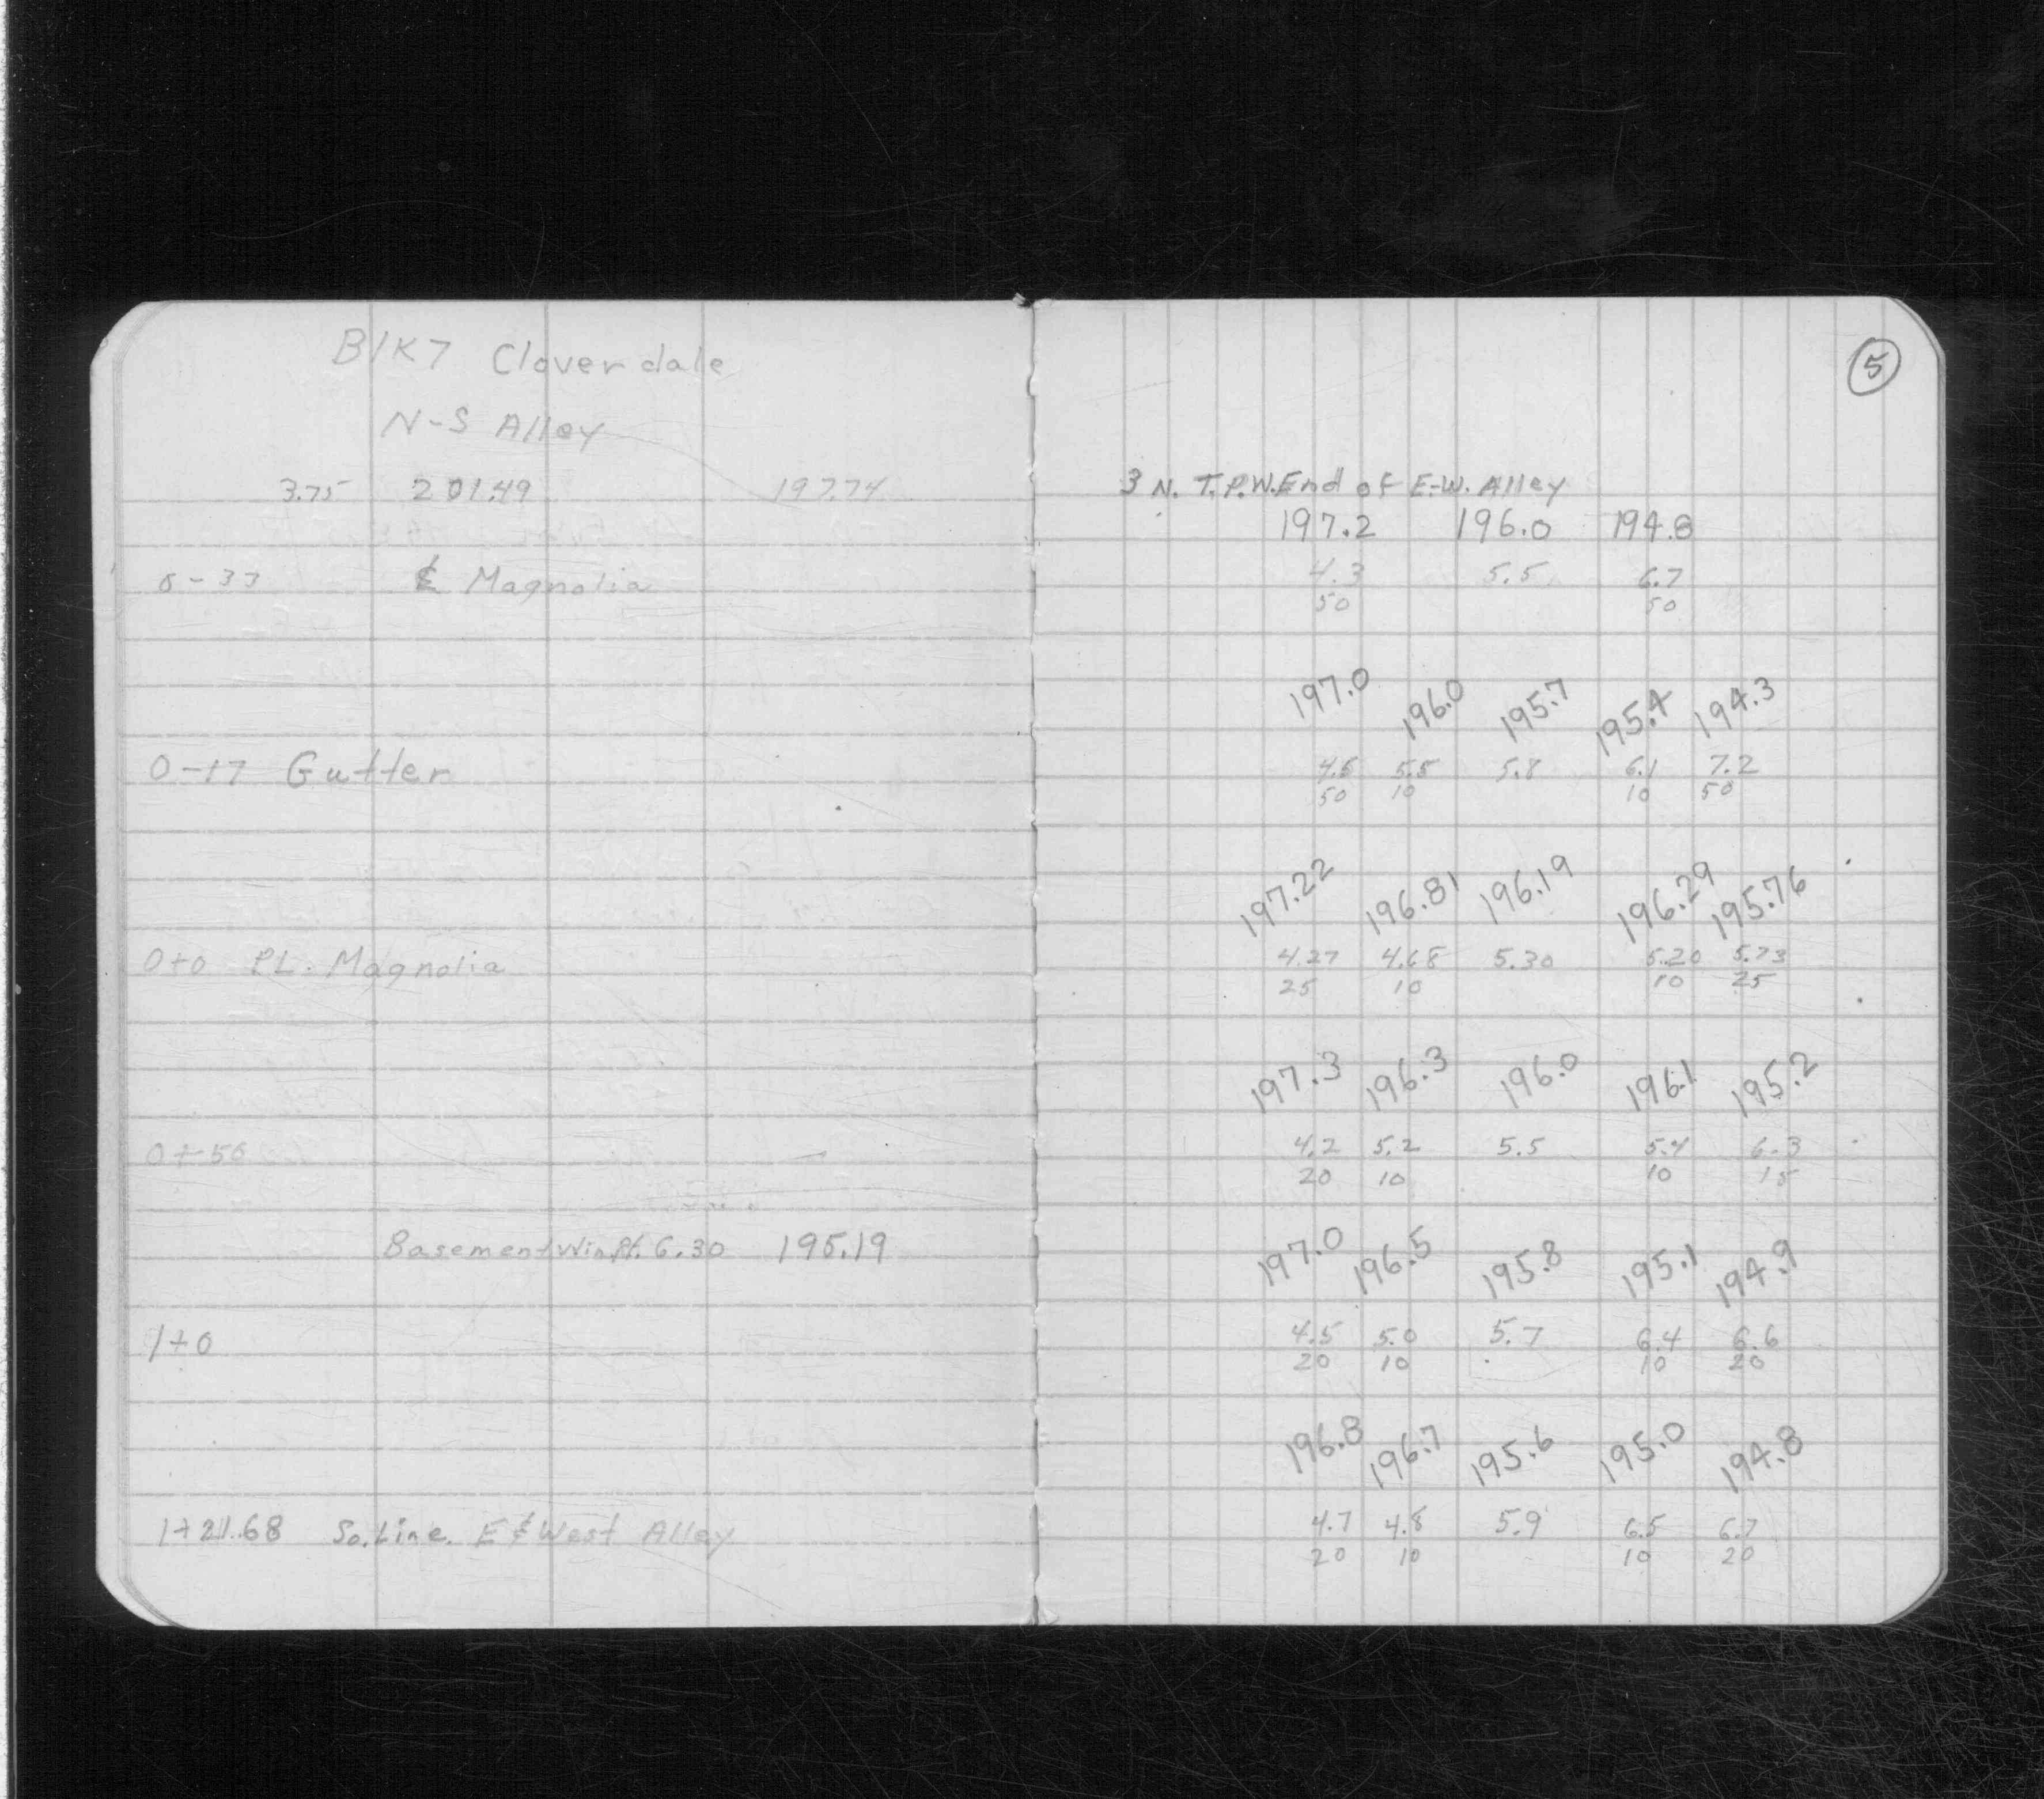 Blk 7 Cloverdale
N-S Alley
3.75 201.49 197.74
0-33 ℄ Magnolia
0-17 Gutter
0+0 PL. Magnolia
0+50
Basement Win. 6.30 195.19
1+0
1+21.68 So. Line. E & West Alley
5
3 N. T.P. W. End of E-W. Alley
197.2 196.0 194.8
4.3 5.5 6.7
50 50
197.0 196.0 195.7 195.4 194.3
4.5 5.5 5.8 6.1 7.2
50 10 10 50
197.22 196.81 196.19 196.29 195.76
4.27 4.68 5.30 5.20 5.73
25 10 10 25
197.3 196.3 196.0 196.1 195.2
4.2 5.2 5.5 5.4 6.3
20 10 10 15
197.0 196.5 195.8 195.1 194.9
4.5 5.0 5.7 6.4 6.6
20 10 10 20
196.8 196.7 195.6 195.0 194.8
4.7 4.8 5.9 6.5 6.7
20 10 10 20